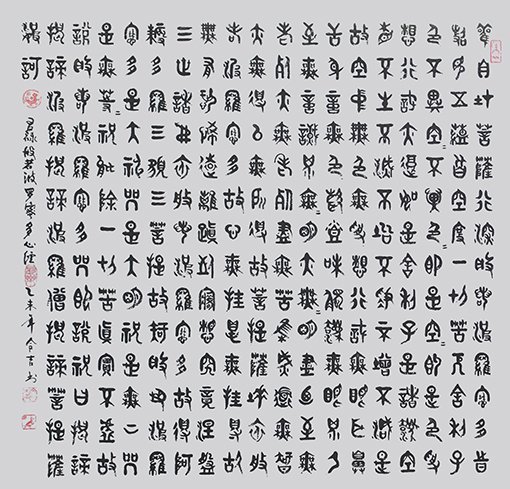 觀自在菩薩行深般若波羅蜜多時
照見五蘊皆空度一切苦厄舍利子
色不異空〻不異色〻即是空〻即是色受
想行識亦復如是舍利子是諸法空
相不生不滅不垢不淨不增不減是
故空中無色無受想行識無眼耳鼻
舌身意無色聲香味觸法無眼界乃
至無意識界無〻明亦無〻明盡乃至無
老死亦無老死盡無苦集滅道無智
亦無得以無所得故菩提薩埵依般
若波羅蜜多故心無罣礙無罣礙故
無有恐怖遠離顛倒夢想究竟涅槃
三世諸佛依般若波羅蜜多故得阿
耨多羅三藐三菩提故知般若波羅
蜜多是大神咒是大明咒是無上咒
是無等〻咒能除一切苦真實不虛故
說般若波羅蜜多咒即說咒曰揭諦
揭諦波羅揭諦波羅僧揭諦菩提薩
婆訶
般若波罗蜜多心经 乙未年